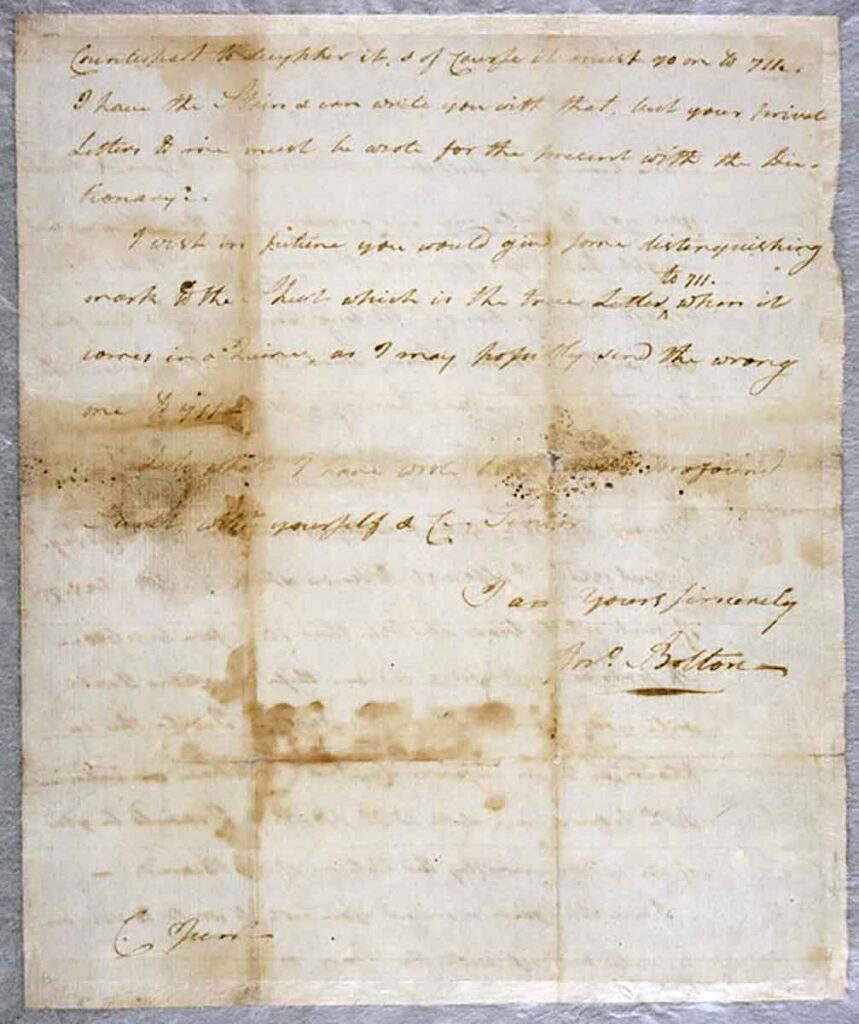 Counterpart to decypher it, & of Course it must go on to 711.
I have the Stain & can write you with that, but your private
Letters to me must be wrote for the present with the Dic-
tionary.
I wish in future you would give some distinguishing
mark to the Sheet which is the true Letter to 711. when it
comes in a Quire, as I may hopefully send the wrong
one to 711
what I have wrote profound
Secret, with yourself & C. Senior
I am Yours sincerely
Jno. Bolton
C. Junr.